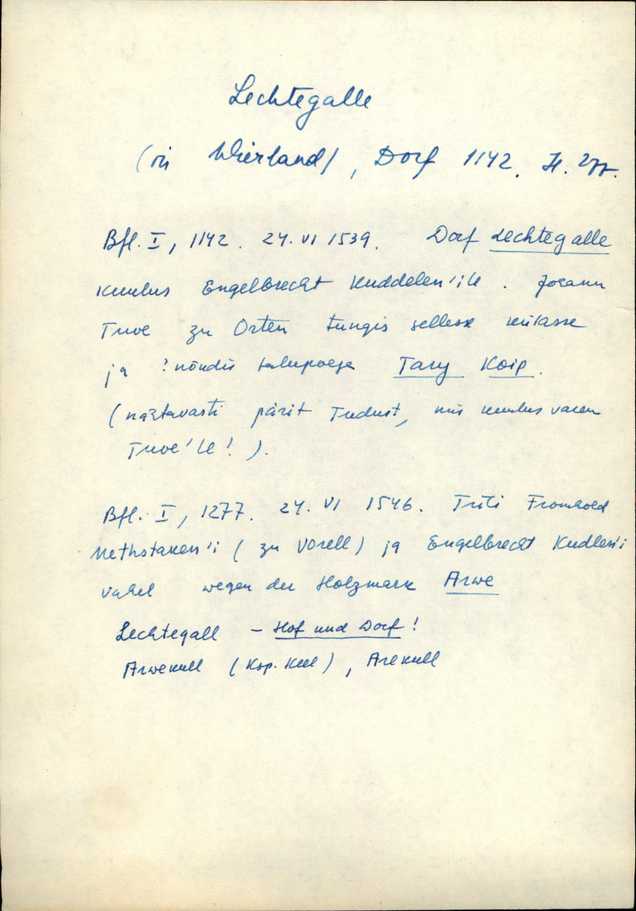 Lechtegalle
(in Wierland), Dorf 1142. H.
Bfl. I, 1142. 24. VI 1539. Dorf Lechtegalle
kuulus Engelbrecht Kuddelen'ile. Johann
Tuve zu Orten tungis sellesse külasse
ja talupoega Tary Koip.
(nähtavasti pärit Tudust, mis kuulus varem
Tuve'le!).
Bfl. I, 1277. 24. VI 1546. Tüli Fromhold
Methstaken'i (zu Vorell) ja Engelbrecht Kudlen'i
vahel wegen der Holzmark Arwe
Lechtegall – Hof und Dorf!
Arwekull (Ksp. Keel), Arekull